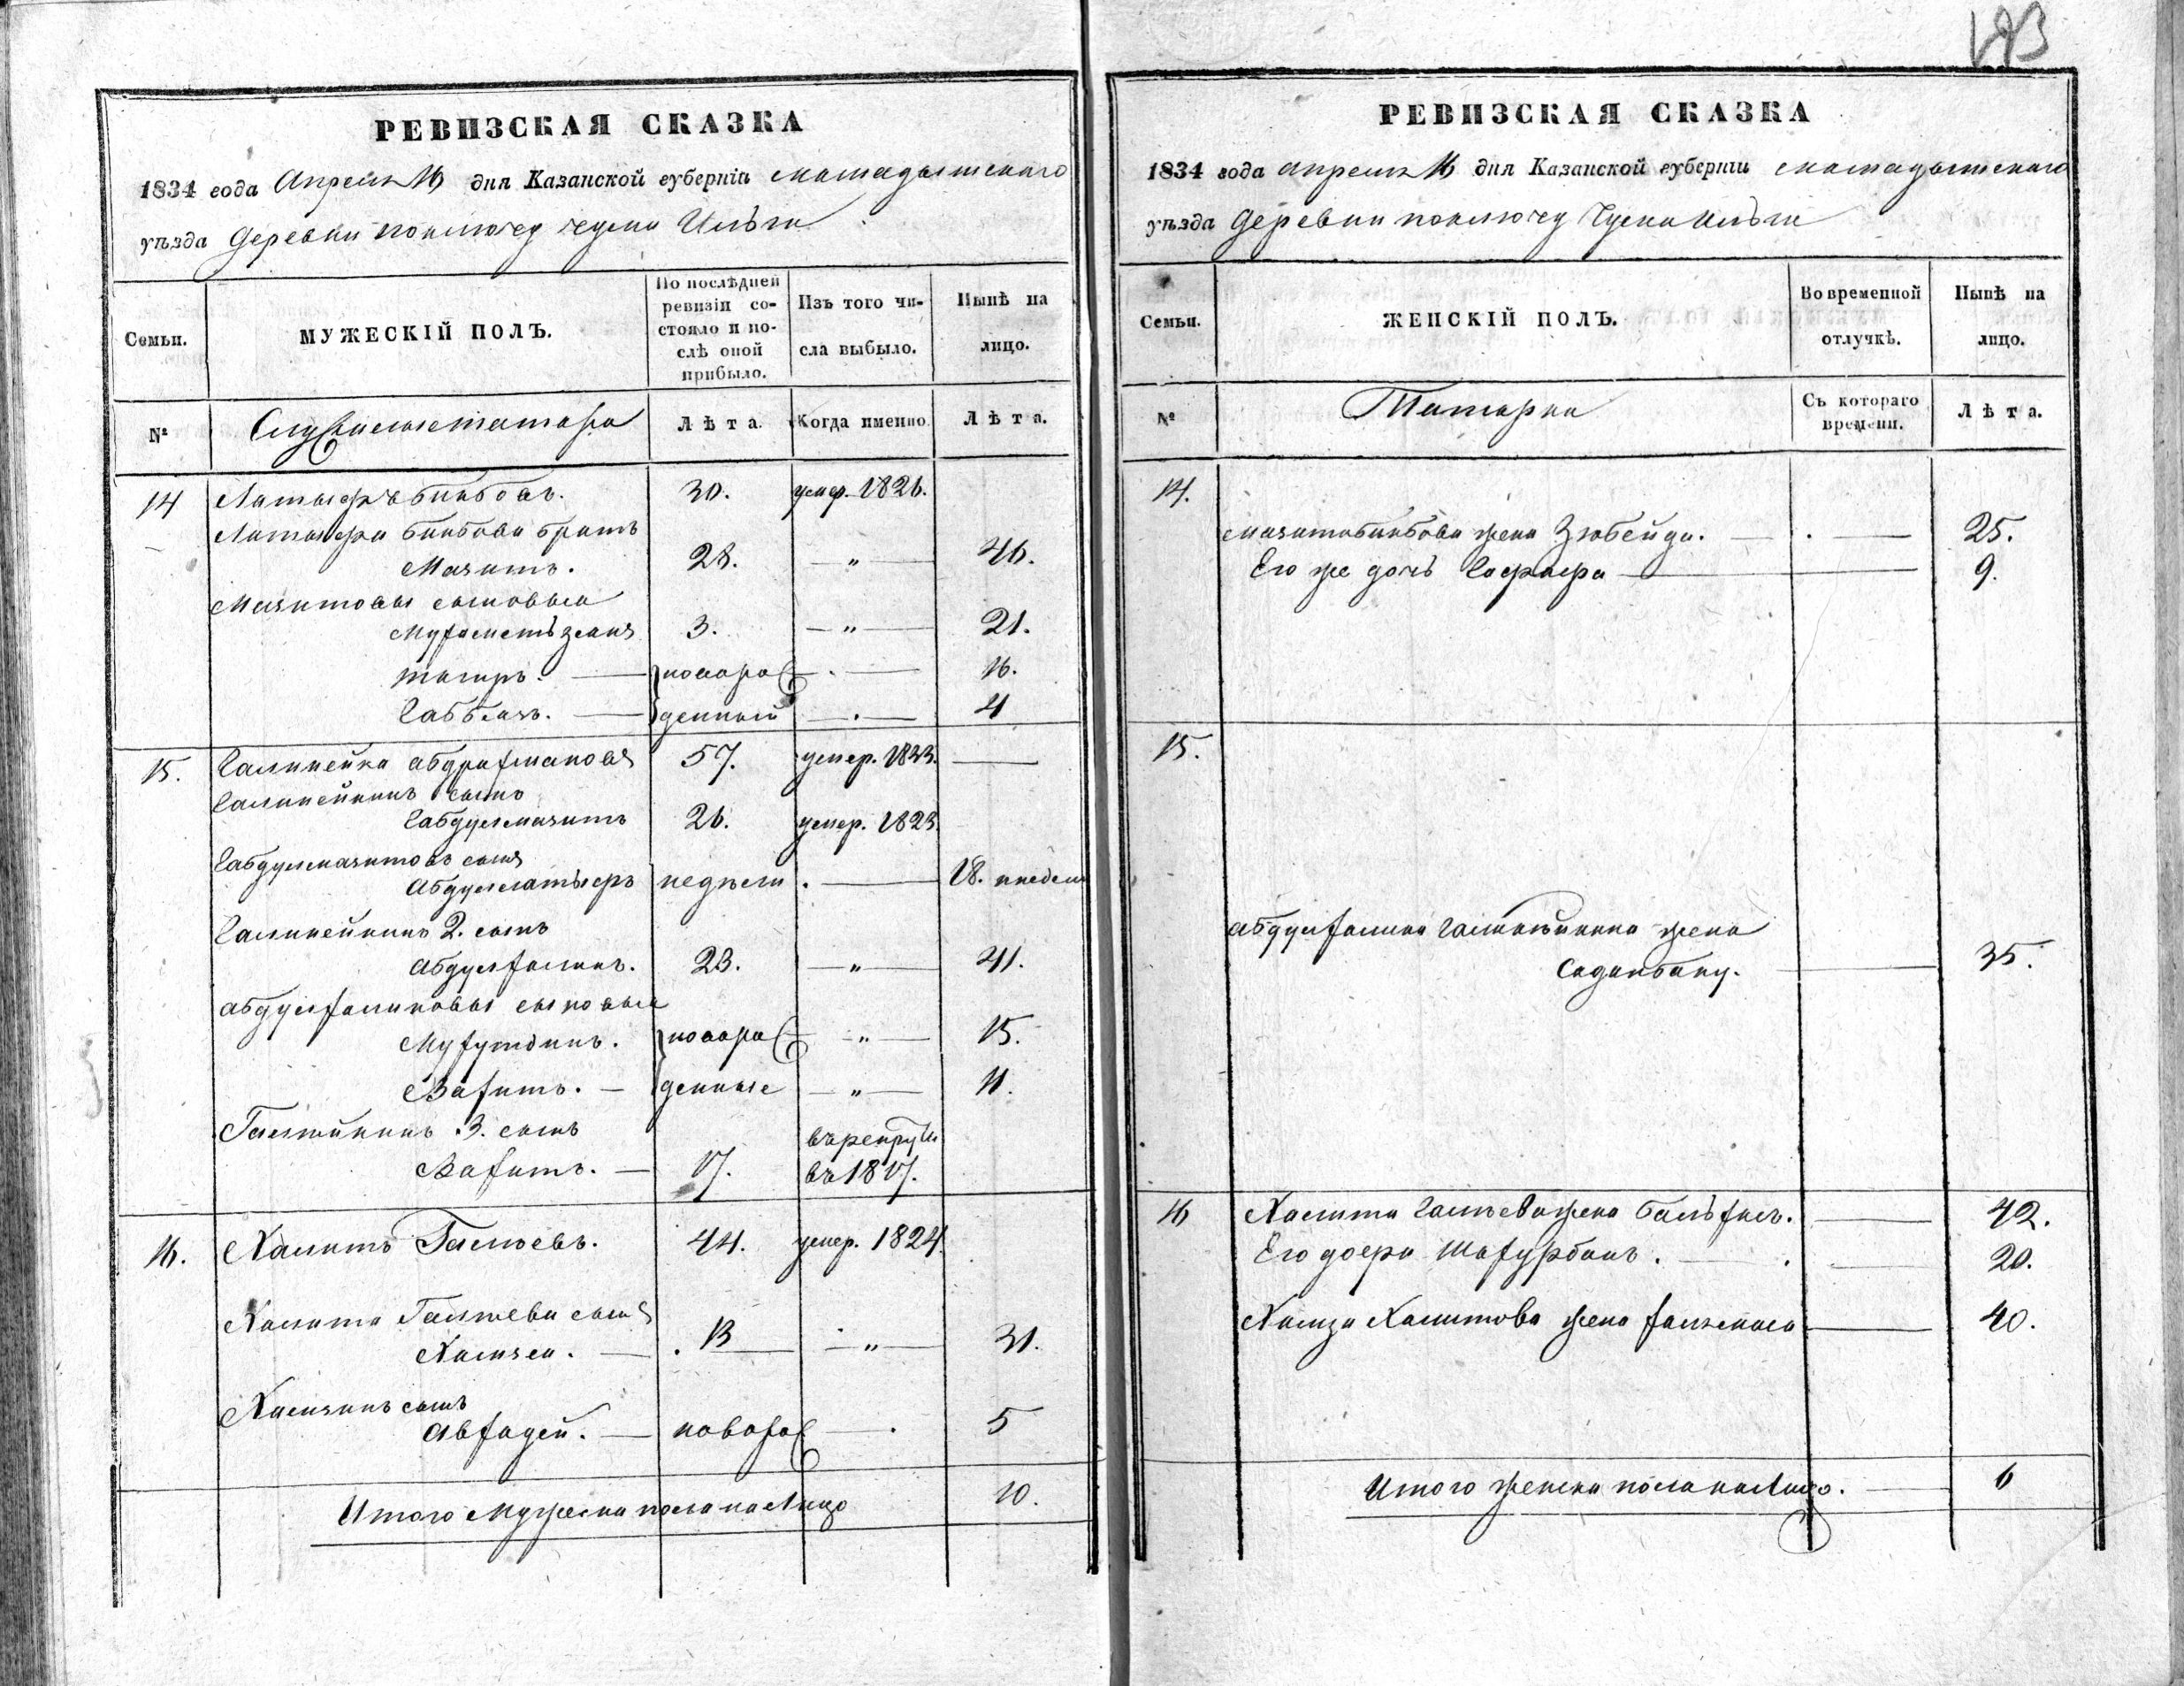 193
РЕВИЗСКАЯ СКАЗКА
1834 года Апреля 16 дня Казанской губерніи мамадышского
уѣзда Деревни поключу чумы Ильги
Семьи.
МУЖЕСКІЙ ПОЛЪ.
По послѣдней ревизіи со-
стояло и по-
слѣ оной
прибыло.
Изъ того чи-
сла выбыло.
Нынѣ на
лицо.
№
Служилыетатара
Лѣта.
Когда именно.
Лѣта.
14 Латыфъ бикбовъ. 30. умер. 1826.
Латыфа бикбова братъ
Мазитъ. 28. — " — 46.
Мазитовы сыновья
Мухаметзянъ 3. — " — 21.
тагиръ. — новорож — . — 16.
Габбасъ. — денныи — . — 4
15. Галикейка абдрахмановъ 57. умер. 1833. —
Галикейкинъ сынъ
Габдулмазитъ 26. умер. 1823.
Габдулмазитовъ сынъ
абдуллатыфъ недѣли . — 18. инедели
Галикейкинъ 2. сынъ
абдулхаликъ. 23. — " — 41.
абдулхаликовы сыновья
Мухутдинъ. новорож — " — 15.
Вахитъ. — денные — " — 11.
Галикейкинъ 3. сынъ
Вахитъ. — 17. въ рекруты
въ 1817.
16. Халитъ Галѣевъ. 44. умер. 1824.
Халита Галѣева сынъ
Хамзя. — . 13 — — " — 31.
Хамзинъ сынъ
Авхадей. — новорож — . 5
Итого Мужеска пола на Лицо 10.
РЕВИЗСКАЯ СКАЗКА
1834 года апреля 16 дня Казанской губерніи мамадышского
уѣзда Деревни поключу Чумы Ильги
Семьи.
ЖЕНСКІЙ ПОЛЪ.
Во временной
отлучкѣ.
Нынѣ на
лицо.
№
Татарки
Съ котораго
времени.
Лѣта.
14.
мазита бикбова жена Зюбейда. — . — 25.
Его же дочь Гафифа — — 9.
15.
абдулхалика Галикейкина жена
Садикбану. — 35.
16 Халита Галѣева жена балъхия. — 42.
Его дочери Шахурбанъ. — . — 20.
Хамзи Халитова жена — 40.
Итого женска пола налицо. — 6